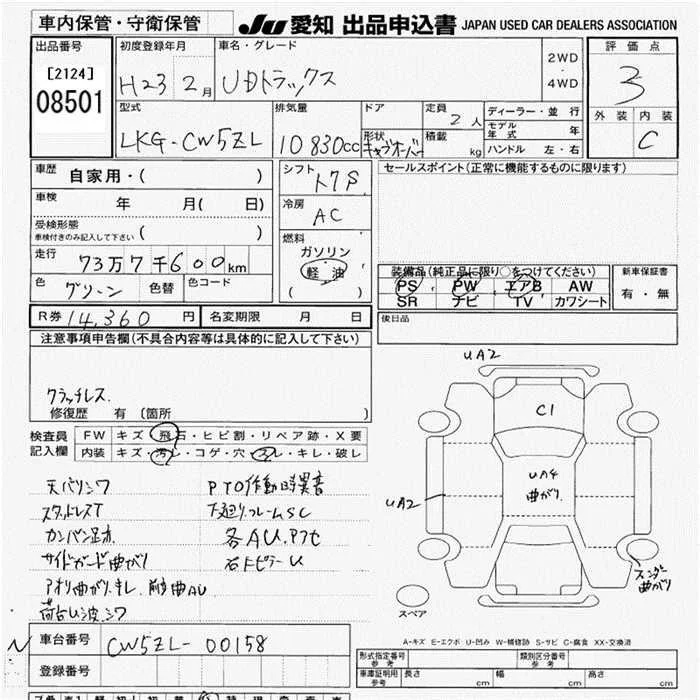 車内保管・守衛保管
JU 愛知 出品申込書 JAPAN USED CAR DEALERS ASSOCIATION
出品番号
[2124]
08501
初度登録年月
H23 2月
車名・グレード
UDトラックス
2WD
・
4WD
評価点
3
外装 内装
C
型式
LKG-CW5ZL
排気量
10830cc
ドア
形状
キャブオーバー
定員
2人
積載
kg
ディーラー・並行
モデル年式 年
ハンドル 左・右
車歴
自家用・( )
車検
年 月( 日)
受検形態
車検付きのみ記入して下さい ( )
走行
73万7千600km
色
グリーン
色替
色コード
シフト
冷房
AC
燃料
ガソリン
軽油
( )
セールスポイント(正常に機能するものに限ります)
装備品(純正品に限り○をつけてください)
PS PW エアB AW
SR ナビ TV カワシート
新車保証書
有・無
R券 14,360円
名変期限 月 日
後日品
注意事項申告欄(不具合内容等は具体的に記入して下さい)
クラッチレス.
修復歴 有 〔箇所 〕
検査員記入欄
FW キズ・飛石・ヒビ割・リペア跡・X要
内装 キズ・汚レ・コゲ・穴・スレ・キレ・破レ
天バリシワ
スタッドレスT
カンバン足水
サイドガード曲がり
アオリ曲がり.キレ.
荷台U波.シワ
PTO作動時異音
下廻りフレームSC
各AU.Pフセ
右ドピラーU
UA2
C1
UA4
曲がり.
UA2
フェンダー
曲がり
スペア
A-キズ E-エクボ U-凹み W-補修跡 S-サビ C-腐食 XX-交換済
N
車台番号
CW5ZL-00158
登録番号
形式指定番号
参考
類別区分番号
参考
車庫証明用
参考
長さ cm
幅 cm
高さ cm